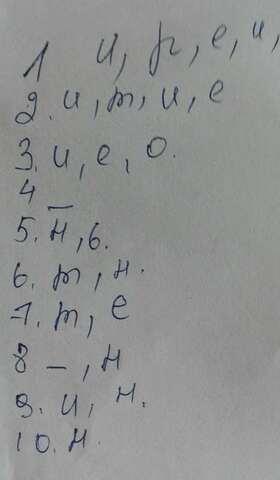 1 и, т, е, и,
2. и, т, и, е
3. и, е, о.
4 _
5. н, ь.
6. т, н.
7. т, е
8 _, н
9. и, н.
10. н.